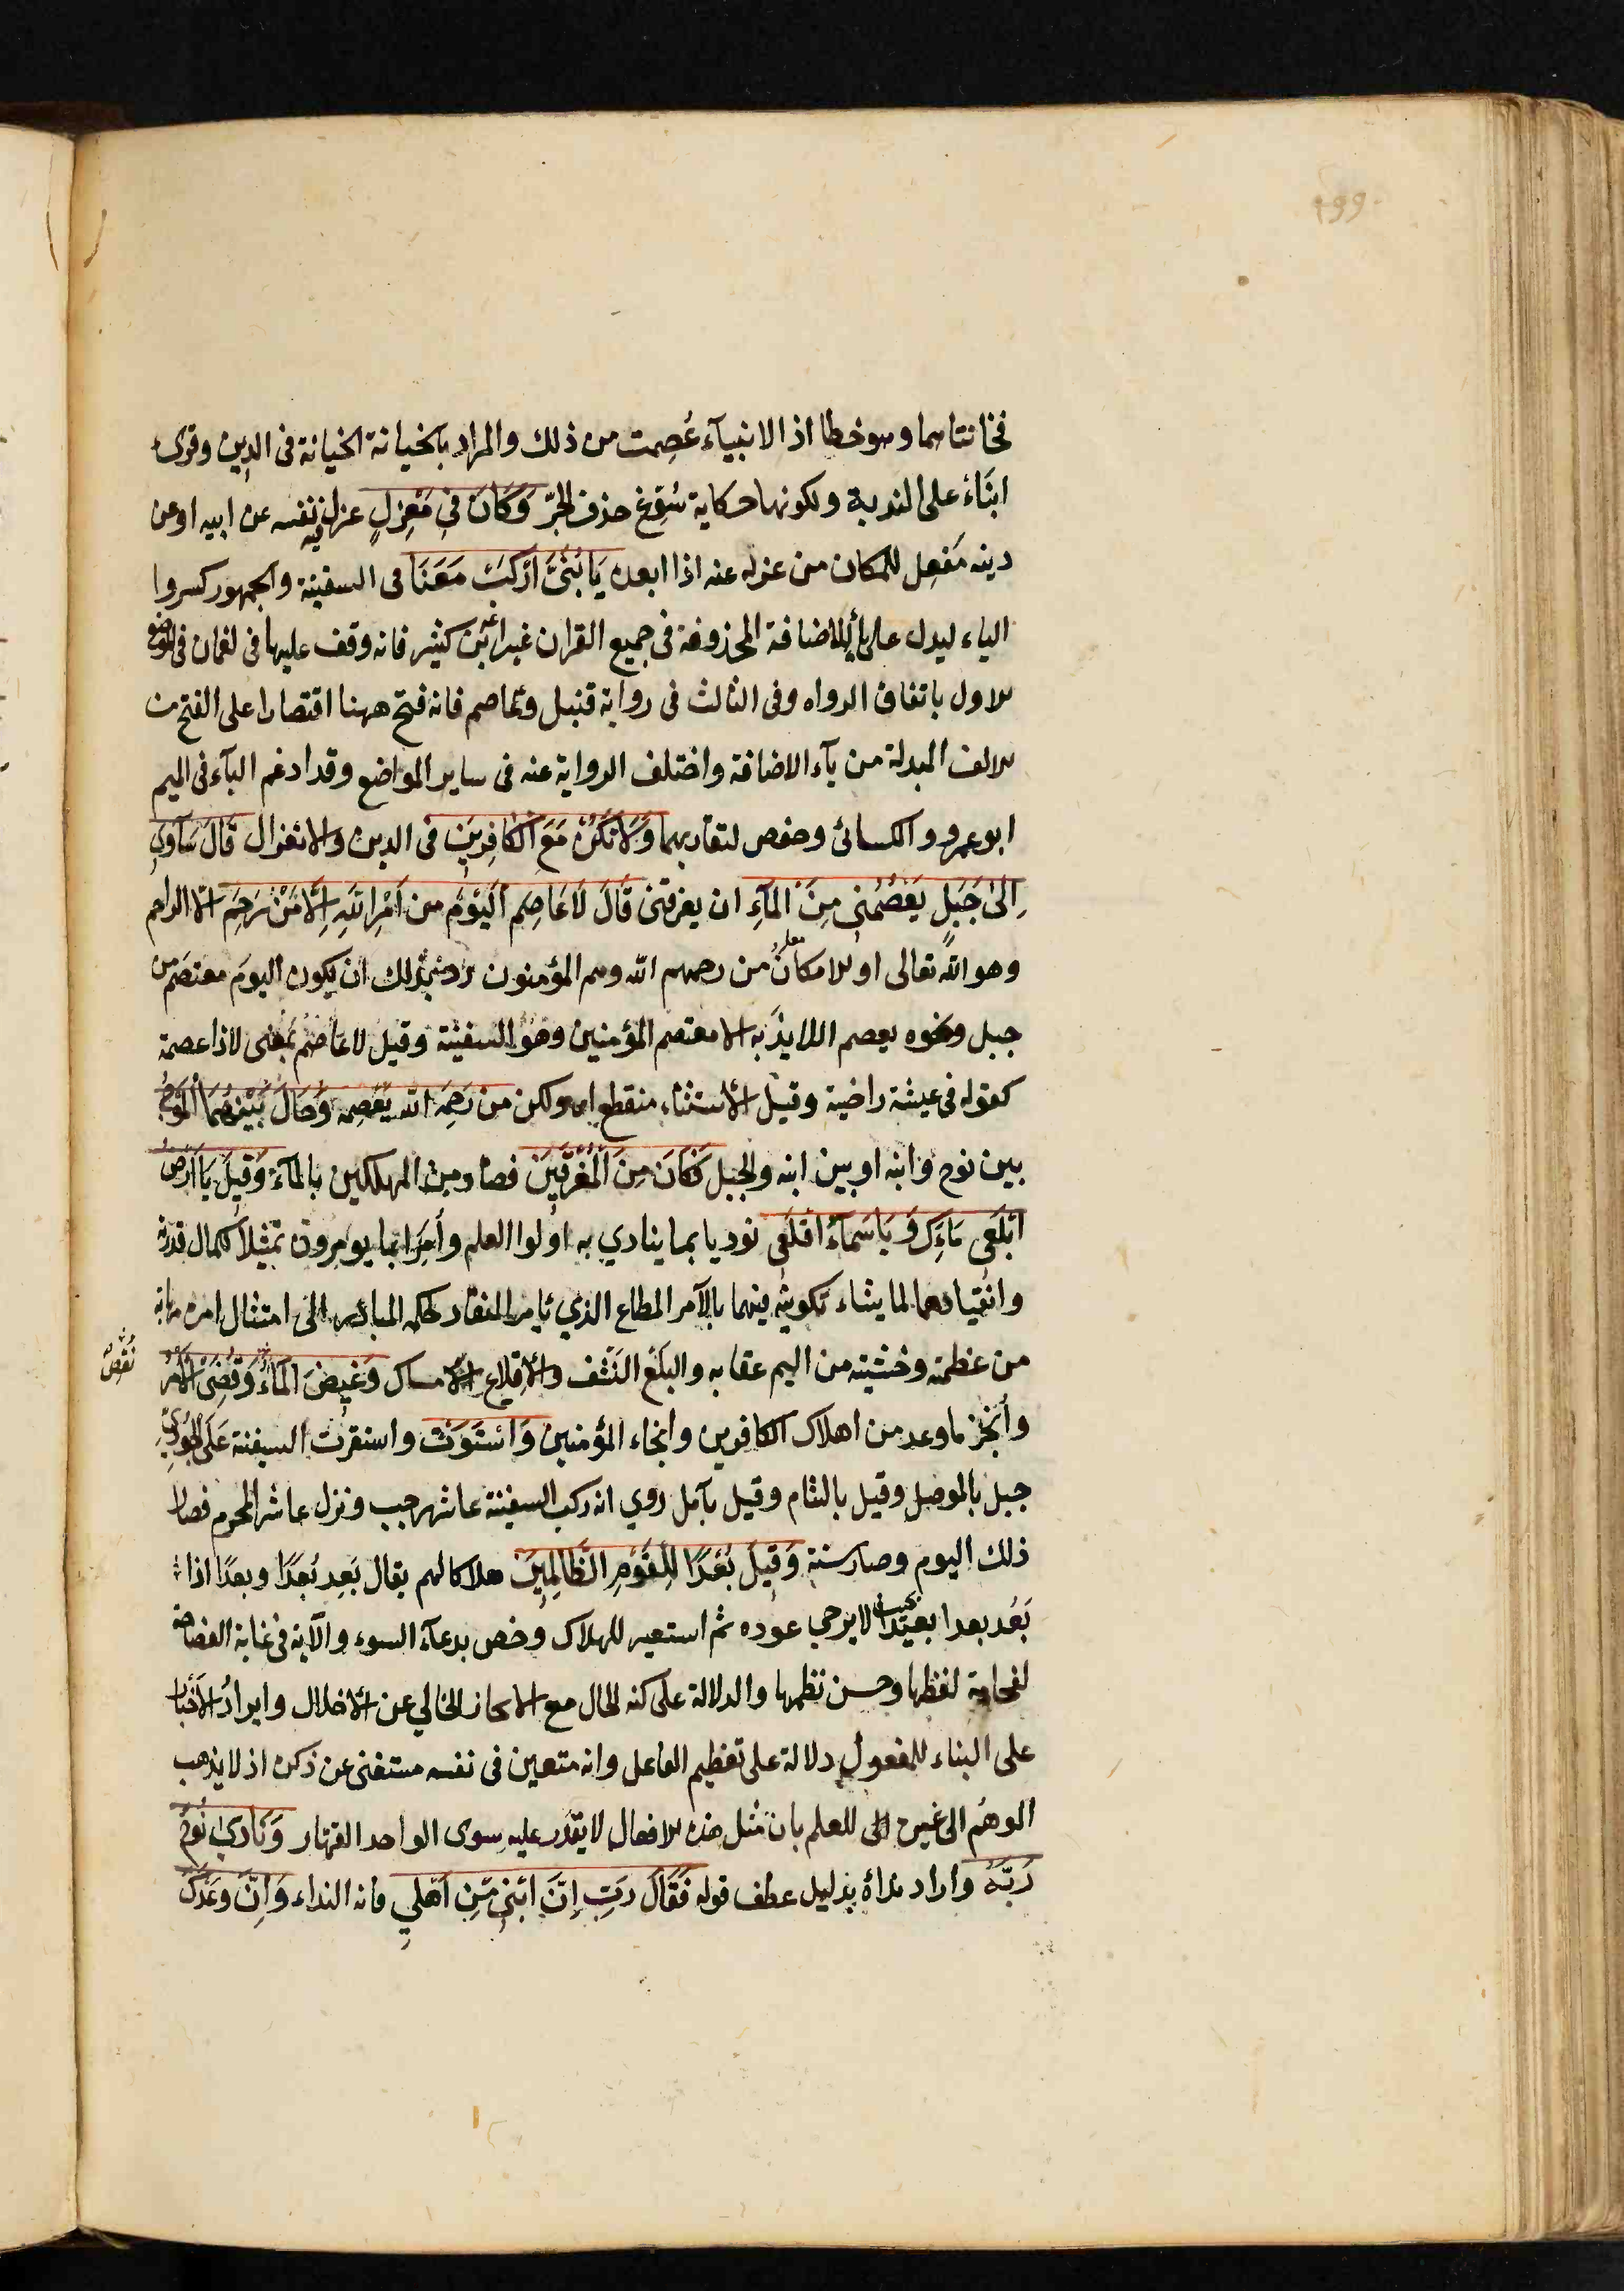 ٢٩٩
فخانتاهما وهو خطا اذ الانبيآء عُصِمت من ذلك والمراد بالخيانة الخيانة فى الدين وقرئ
ابنَاهْ على الندبة ولكونها حكاية سُوّغ حذف الحرف وَكَانَ فِي مَعْزِلٍ عزل فيه نفسه عن ابيه او عن
دينه مَفعِل للمكان من عزله عنه اذا ابعده يَا بُنَيَّ ارْكَبْ مَعَنَا فى السفينة والجمهور كسروا
الياء ليدل على يآء الاضافة المحذوفة فى جميع القران غير ابن كثير فانه وقف عليها فى لقمان فى الموضع
الاول باتفاق الرواه وفى الثالث فى رواية قنبل وعاصم فانه فتح ههنا اقتصارا على الفتح من
الالف المبدلة من يآء الاضافة واختلف الرواية عنه فى ساير المواضع وقد ادغم البآء فى الميم
ابو عمرو والكسائى وحفص لتقاربهما وَلَا تَكُنْ مَعَ الْكَافِرِينَ فى الدين والانعزال قَالَ سَآوِي
اِلَىٰ جَبَلٍ يَعْصِمُنِي مِنَ الْمَآءِ ان يغرقنى قَالَ لَا عَاصِمَ الْيَوْمَ مِنْ اَمْرِ اللّٰهِ اِلَّا مَنْ رَحِمَ الا الراحم
وهو الله تعالى او الا مكان من رحمهم الله وهم المؤمنون رد بذلك ان يكون اليوم معتصم من
جبل ونحوه يعصم اللايذ به الا معتصم المؤمنين وهو السفينة وقيل لا عاصم بمعنى لا ذا عصمة
كقوله فى عيشة راضية وقيل الاستثناء منقطع اى ولكن من رَحِمَهُ الله يَعْصِمه وَحَالَ بَيْنَهُمَا الْمَوْجُ
بين نوح وابنه او بين ابنه والجبل فَكَانَ مِنَ الْمُغْرَقِينَ فصار من المهلكين بالمآء وَقِيلَ يَا اَرْضُ
ابْلَعِي مَاءَكِ وَيَا سَمَاءُ اَقْلِعِي نوديا بما ينادي به اولوا العلم واُمِرَا بما يومرون تمثيلا لكمال قدرته
وانقيادهما لما يشاء تكوينه فيهما بالآمر المطاع الذي يامر المنقاد لحكمه المبادر الى امتثال امره مهابة
من عظمته وخشيته من اليم عقابه والبلع النَشف والاقلاع الامساك وَغِيضَ الْمَاءُ وَقُضِيَ الْاَمْرُ
نُقِصَ
وأنجز ما وعد من اهلاك الكافرين وانجاء المؤمنين وَاسْتَوَتْ واستقرت السفينة عَلَى الْجُودِيِّ
جبل بالموصل وقيل بالشام وقيل بآمل روي انه ركب السفينة عاشر رجب ونزل عاشر المحرم فصام
ذلك اليوم وصار سنة وَقِيلَ بُعْدًا لِلْقَوْمِ الظَّالِمِينَ هلاكا لهم يقال بَعِد بُعدًا وبعدًا اذا
بَعُد بعدا بعيدا بحيث لا يرجى عوده ثم استعير للهلاك وخص بدعآء السوء والآية فى غاية الفصاحة
لفخامة لفظها وحسن نظمها والدلالة على كنه الحال مع الايجاز الخالي عن الاخلال وايراد الاخبار
على البناء للمفعول دلالة على تعظيم الفاعل وانه متعين فى نفسه مستغنى عن ذكره اذ لا يذهب
الوهم الى غيره للعلم بان مثل هذه الافعال لا يقدر عليه سوى الواحد القهار وَنَادَىٰ نُوحٌ
رَبَّهُ واراد نداءه بدليل عطف قوله فَقَالَ رَبِّ اِنَّ ابْنِي مِنْ اَهْلِي فانه النداء وَاِنَّ وَعْدَكَ